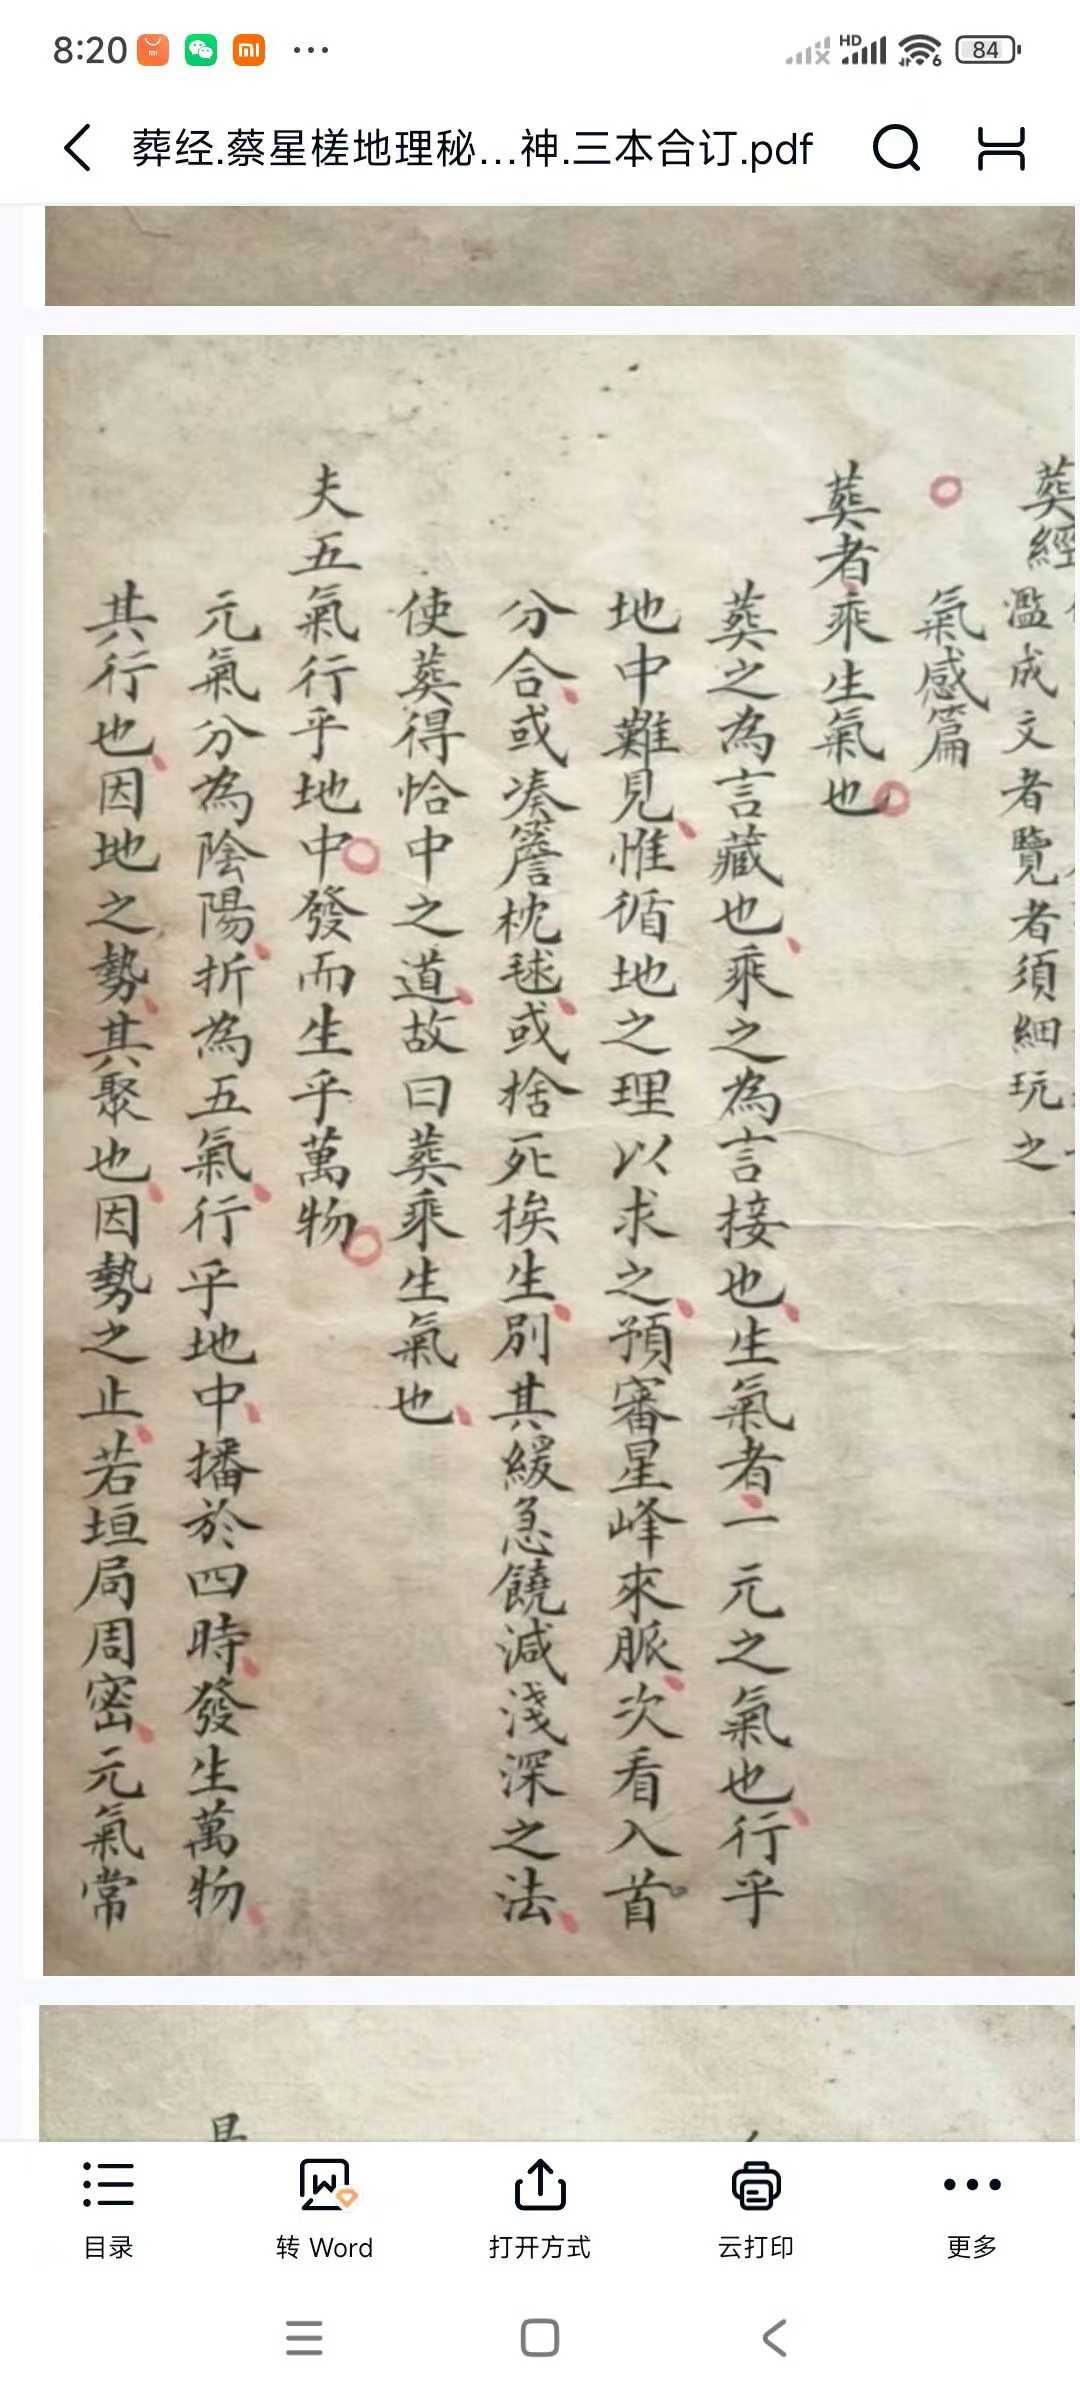 8:20
HD
6
84
葬经.蔡星槎地理秘...神.三本合订.pdf
葬經
濫成文者覽者須細玩之
氣感篇
葬者乘生氣也
葬之為言藏也乘之為言接也生氣者一元之氣也行乎
地中難見惟循地之理以求之預審星峰來脈次看入首
分合或湊簷枕毬或捨死挨生別其緩急饒減淺深之法
使葬得恰中之道故曰葬乘生氣也
夫五氣行乎地中發而生乎萬物
元氣分為陰陽折為五氣行乎地中播於四時發生萬物
其行也因地之勢其聚也因勢之止若垣局周密元氣常
目录
转 Word
打开方式
云打印
更多